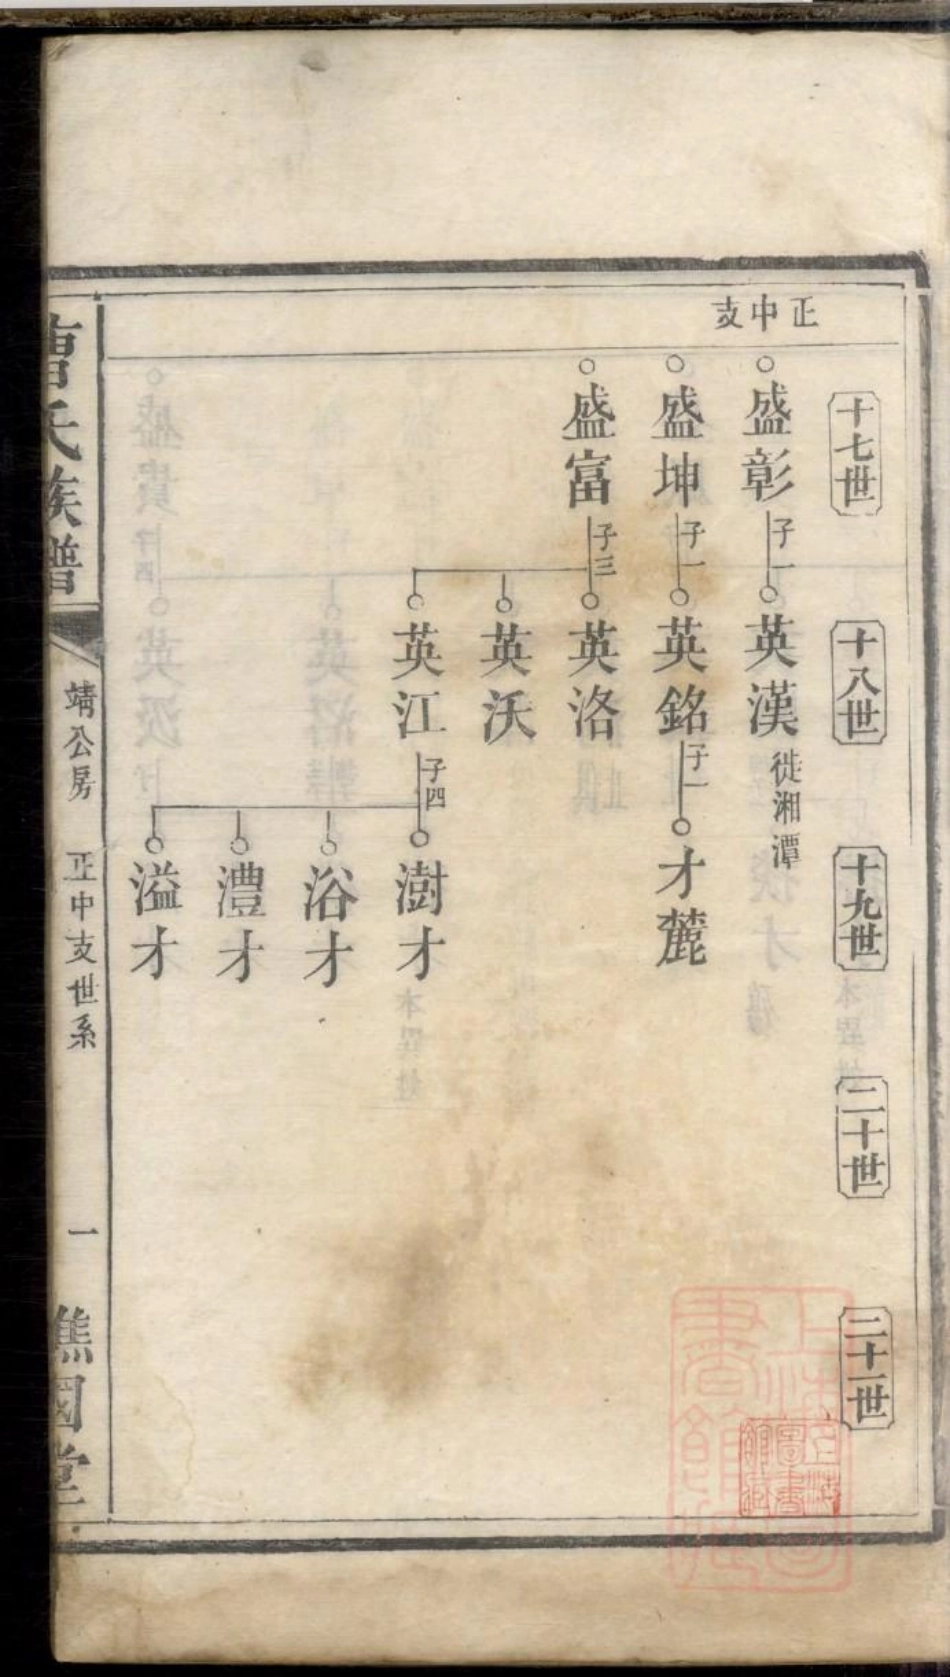 正中支
十七世
十八世
十九世
二十世
二十一世
盛彰
子一
英漢
徙湘潭
盛坤
子一
英銘
子一
才麓
盛富
子三
英洛
英沃
英江
子四
澍才
浴才
澧才
溢才
曹氏族譜
靖公房
正中支世系
一
譙國堂